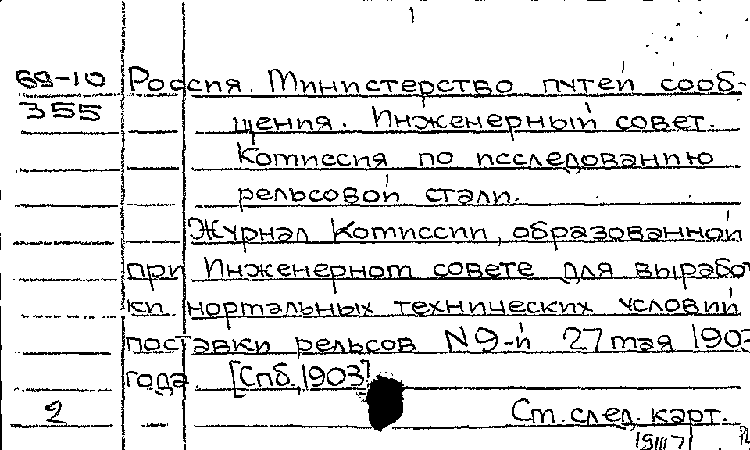 69-10 Россия. Министерство путей сооб-
355 щения. Инженерный совет.
Комиссия по исследованию
рельсовой стали.
Журнал Комиссии, образованной
при Инженерном совете для выработ
ки нормальных технических условий
поставки рельсов N9-й 27 мая 1903
года. [Спб, 1903]
2 См. след. карт.